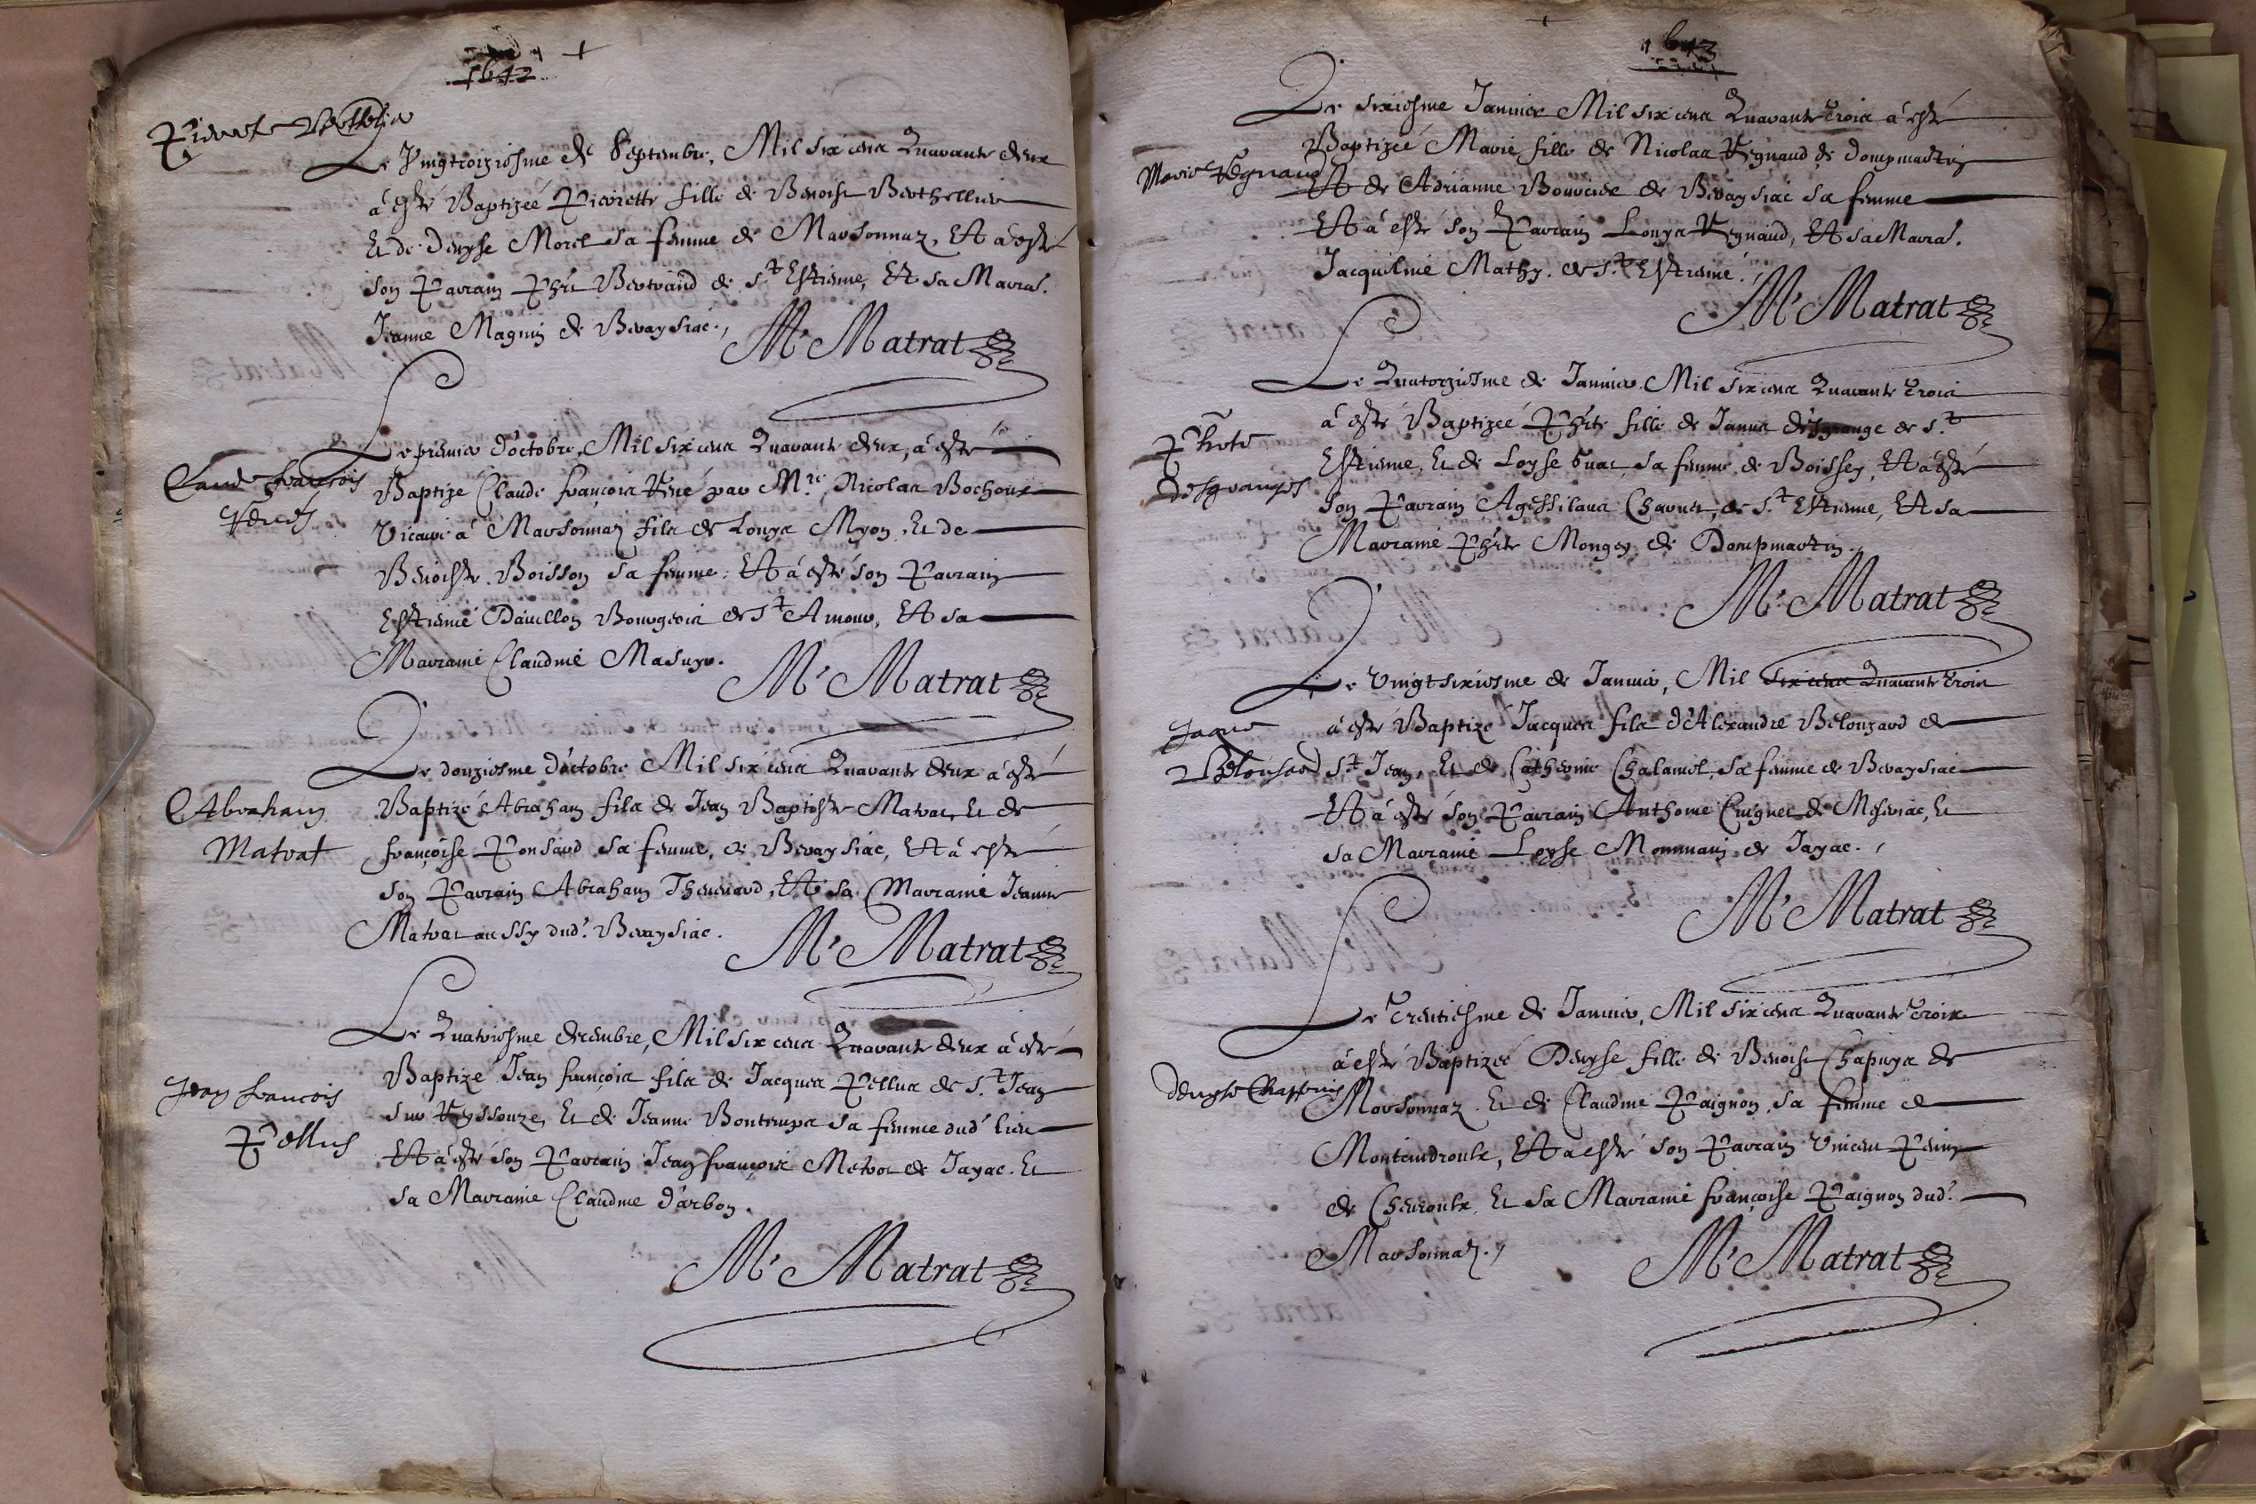 1642
Le Vingttroiziesme de Septembre, Mil six cens Quarante deux
à esté Baptizeé Pierrette fille de Benoist Berthellier
Et de Denyse Morel sa femme de Marsonnaz, Et à esté
son Parrain Phi͞t Bertrand de St Estienne, Et sa Marra͞e.
Jeanne Magnin de Bevaysiac.,
Mre Matrat
Claude françois
René
Le premier d'octobre, Mil six cens Quarante deux, à esté
Baptize Claude françois René par Mre, Nicolas Bochour
Vicaire à Marsonnaz fils de Louys Myon, Et de
Benoiste Boisson sa femme, Et à esté son Parrain
Estienne Davillon Bourgeois de St Amour, Et sa
Marraine Claudine Masuyr.
Mre Matrat
Abraham
Matrat
Le douziesme d'octobre Mil six cens Quarante deux à esté
Baptizé Abraham fils de Jean Baptiste Matrat, Et de
françoise Ponsard sa femme, de Bevaysiac, Et à esté
son Parrain Abraham Thevenard, Et sa Marraine Jeanne
Matrat aussy dud. Bevaysiac.
Mre Matrat
Jean francois
Pellus
Le Quatriesme decembre, Mil six cens Quarante deux à esté
Baptizé Jean françois fils de Jacques Pellus de St Jean
sur Reyssouze, Et de Jeanne Bontemps sa femme dud lieu
Et à esté son Parrain Jean françois Metrat de Jayac. Et
sa Marraine Claudine d'arbon.
Mre Matrat
1643
Marie Regnaud
Le sixiesme Janvier Mil six cens Quarante trois à esté
Baptizeé Marie fille de Nicolas Regnaud de dompmartin
Et de Adrianne Bouvier de Bevaysiac sa femme
Et à esté son Parrain Louys Regnaud, Et sa Marra͞e.
Jacqueline Mathy. de St Estienne.,
Mre Matrat
desgranges
Le Quatorziesme de Janvier Mil six cens Quarante trois
à esté Baptizeé Ph͞ite fille de Janus desgrange de St
Estienne, Et de Loyse sa femme, de Boissey, Et à esté
son Parrain Agessilaus Charnet, de St Estienne, Et sa
Marraine Ph͞ite Mongey de Dompmartin.
Mre Matrat
Jaque
Belousard
Le Vingtsixiesme de Janvier, Mil six cens Quarante trois
à esté Baptizé Jacques fils d'Alexandre Belouzard de
St Jean, Et de Catherine Chalamel, sa femme de Bevaysiac
Et à esté son Parrain Anthoine Cuignet de Meseriac, Et
sa Marraine Loyse Mommain de Jayac.,
Mre Matrat
denyse Chappuis
Le trentiesme de Janvier, Mil six cens Quarante trois
à esté Baptizeé Denyse fille de Benoist Chapuys de
Marsonnaz. Et de Claudine Paignon, sa femme de
Montcindroulx, Et a esté son Parrain Vincent Perin
de Chevroulx, Et sa Marraine françoise Paignon dud.
Marsonnaz.,
Mre Matrat